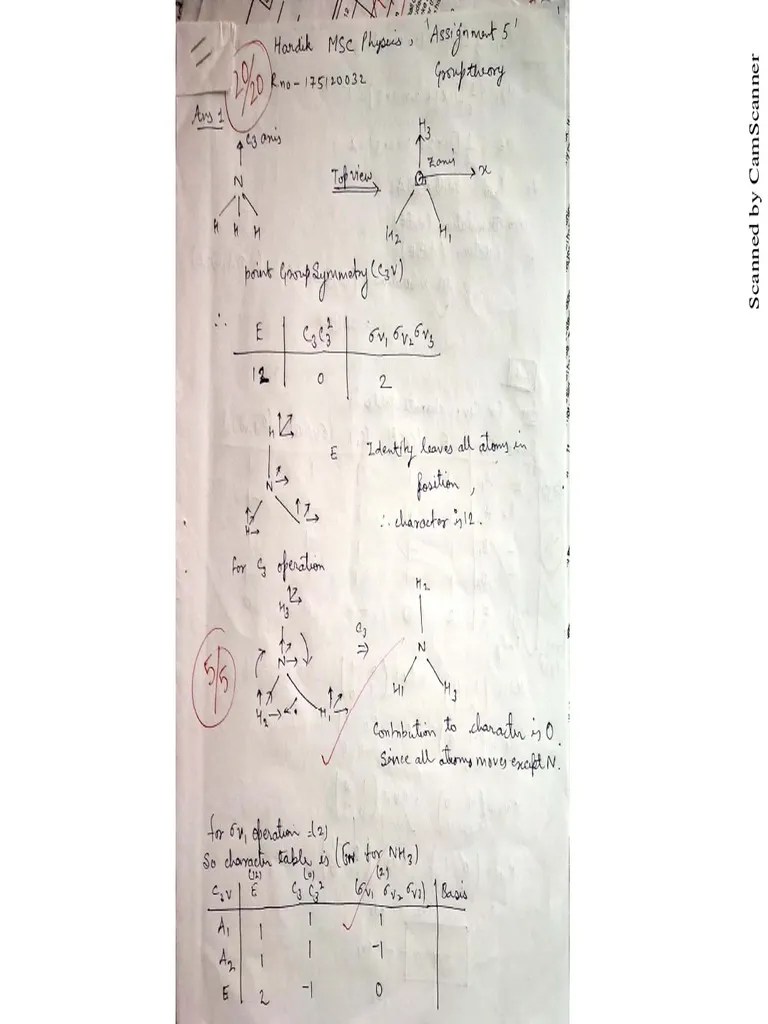 Hardik MSC Physics, 'Assignment 5'
20/20
R no - 175120032 Group theory
Ans 1
C3 axis
N
H H H
Top view
H3
Z axis
x
H2 H1
point Group Symmetry (C3V)
∴ E | C3 C3² | σv1 σv2 σv3
12 | 0 | 2
H
N
H
E Identity leaves all atoms in
position,
∴ character is 12.
for C3 operation
H3
N
H2 H1
C3
⇒
H2
N
H1 H3
5/5
Contribution to character is 0.
Since all atoms moves except N.
for σv1 operation = (2)
So character table is (Γ for NH3)
(12) (0) (2)
C3V | E | C3 C3² | (σv1 σv2 σv3) | Basis
A1 | 1 | 1 | 1
A2 | 1 | 1 | -1
E | 2 | -1 | 0
Scanned by CamScanner